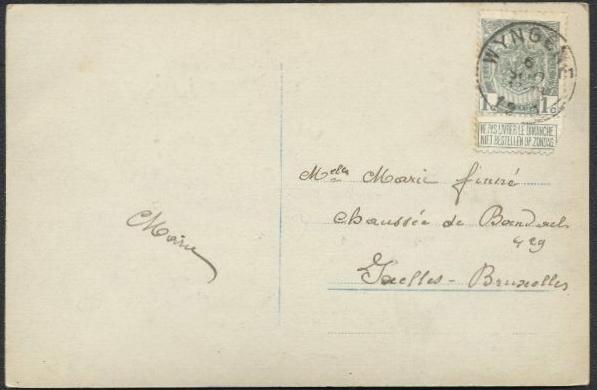 WYNGENE
6
11
19
1c 1c
NE PAS LIVRER LE DIMANCHE
NIET BESTELLEN OP ZONDAG
Melle Marie Finné
Chaussée de
429
Ixelles-Bruxelles